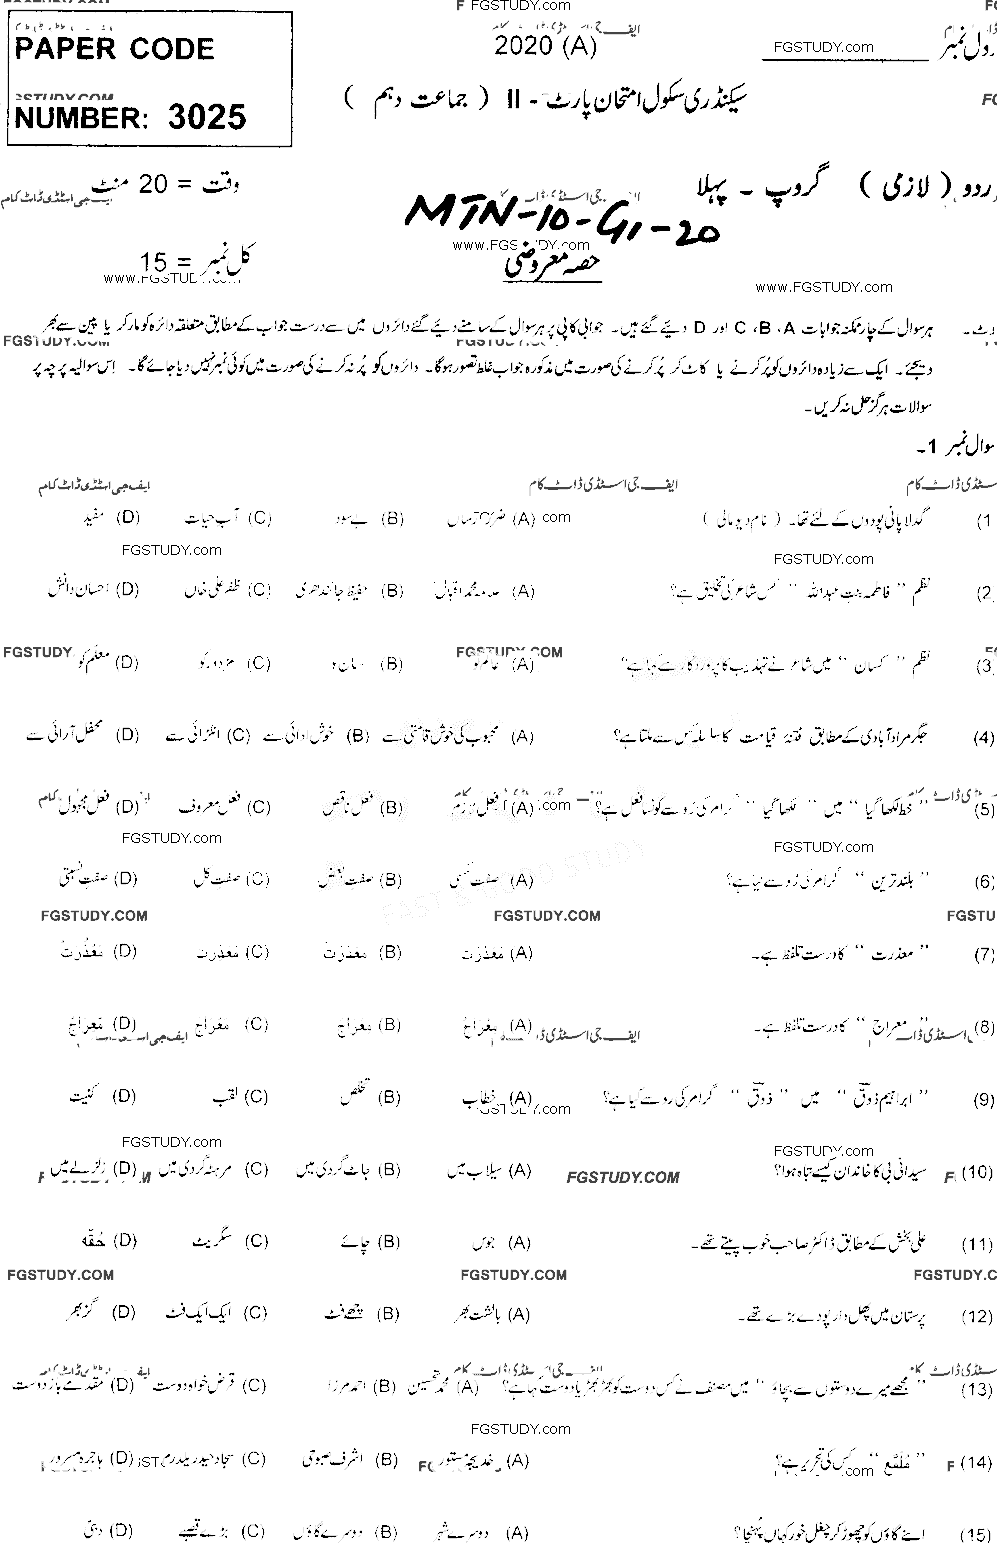 F FGSTUDY.com
PAPER CODE
NUMBER: 3025
2020 (A)
رول نمبر FGSTUDY.com
سیکنڈری سکول امتحان پارٹ - II ( جماعت دہم )
ردو ( لازمی ) گروپ - پہلا
وقت = 20 منٹ
MTN-10-G1-20
www.FGSTUDY.com
حصہ معروضی
کل نمبر = 15
www.FGSTUDY.com
www.FGSTUDY.com
ہر سوال کے چار ممکنہ جوابات A ، B ، C اور D دیئے گئے ہیں۔ جوابی کاپی پر ہر سوال کے سامنے دیئے گئے دائروں میں سے درست جواب کے مطابق متعلقہ دائرہ کو مارکر یا پین سے بھر
دیجئے۔ ایک سے زیادہ دائروں کو پُر کرنے یا کاٹ کر پُر کرنے کی صورت میں مذکورہ جواب غلط تصور ہوگا۔ دائروں کو پُر نہ کرنے کی صورت میں کوئی نمبر نہیں دیا جائے گا۔ اِس سوالیہ پرچہ پر
سوالات ہرگز حل نہ کریں۔
سوال نمبر 1۔
سٹڈی ڈاٹ کام ایف جی اسٹڈی ڈاٹ کام ایف جی اسٹڈی ڈاٹ کام
(1 گدلا پانی پودوں کے لئے تھا۔ ( نام دیو مالی ) (A) ضرر رساں (B) بے سود (C) آب حیات (D) مفید
FGSTUDY.com FGSTUDY.com
(2) نظم ’’ فاطمہ بنت عبداللہ ‘‘ کس شاعر کی تخلیق ہے؟ (A) علامہ محمد اقبال (B) حفیظ جالندھری (C) ظفر علی خاں (D) احسان دانش
(3) نظم ’’ کسان ‘‘ میں شاعر نے تہذیب کا پروردگار کسے کہا ہے؟ (A) (B) (C) مزدور کو (D) معلّم کو
(4) جگر مراد آبادی کے مطابق فتنۂ قیامت کا سلسلہ کس سے ملتا ہے؟ (A) محبوب کی خوش قامتی سے (B) خوش ادائی سے (C) انگڑائی سے (D) محفل آرائی سے
(5) ’’ خط لکھا گیا ‘‘ میں ’’ لکھا گیا ‘‘ گرامر کی رُو سے کونسا فعل ہے؟ (A) فعل لازم (B) فعل ناقص (C) فعل معروف (D) فعل مجہول
FGSTUDY.com FGSTUDY.com
(6) ’’ بلند ترین ‘‘ گرامر کی رُو سے کیا ہے؟ (A) صفت نفسی (B) صفت بعض (C) صفت کل (D) صفت نسبتی
FGSTUDY.COM FGSTUDY.COM FGSTU
(7) ’’ معذرت ‘‘ کا درست تلفظ ہے۔ (A) (B) (C) (D)
(8) ’’ معراج ‘‘ کا درست تلفظ ہے۔ (A) (B) (C) (D)
(9) ’’ ابراہیم ذوقؔ ‘‘ میں ’’ ذوقؔ ‘‘ گرامر کی رو سے کیا ہے؟ (A) خطاب (B) تخلص (C) لقب (D) کنیت
FGSTUDY.com FGSTUDY.com
(10) سیدانی بی کا خاندان کیسے تباہ ہوا؟ (A) سیلاب میں (B) جاٹ گردی میں (C) مرہٹہ گردی میں (D) زلزلے میں
FGSTUDY.COM
(11) علی بخش کے مطابق ڈاکٹر صاحب خوب پیتے تھے۔ (A) جوس (B) چائے (C) سگریٹ (D) حُقّہ
FGSTUDY.COM FGSTUDY.COM FGSTUDY.C
(12) پرستان میں پھل دار پودے بڑے تھے۔ (A) بالشت بھر (B) چھے فٹ (C) ایک ایک فٹ (D) گز بھر
(13) ’’ مجھے میرے دوستوں سے بچاؤ ‘‘ میں مصنف نے کس دوست کو بھڑبھڑیا دوست کہا ہے؟ (A) محمد تحسین (B) احمد مرزا (C) قرض خواہ دوست (D) مقدمے باز دوست
FGSTUDY.com
(14) ’’ مُلمّع ‘‘ کس کی تحریر ہے؟ (A) خدیجہ مستور (B) اشرف صبوحی (C) سجاد حیدر یلدرم (D) ہاجرہ مسرور
(15) اپنے گاؤں کو چھوڑ کر چغل خور کہاں پہنچا؟ (A) دوسرے شہر (B) دوسرے گاؤں (C) بڑے قصبے (D) دبئی